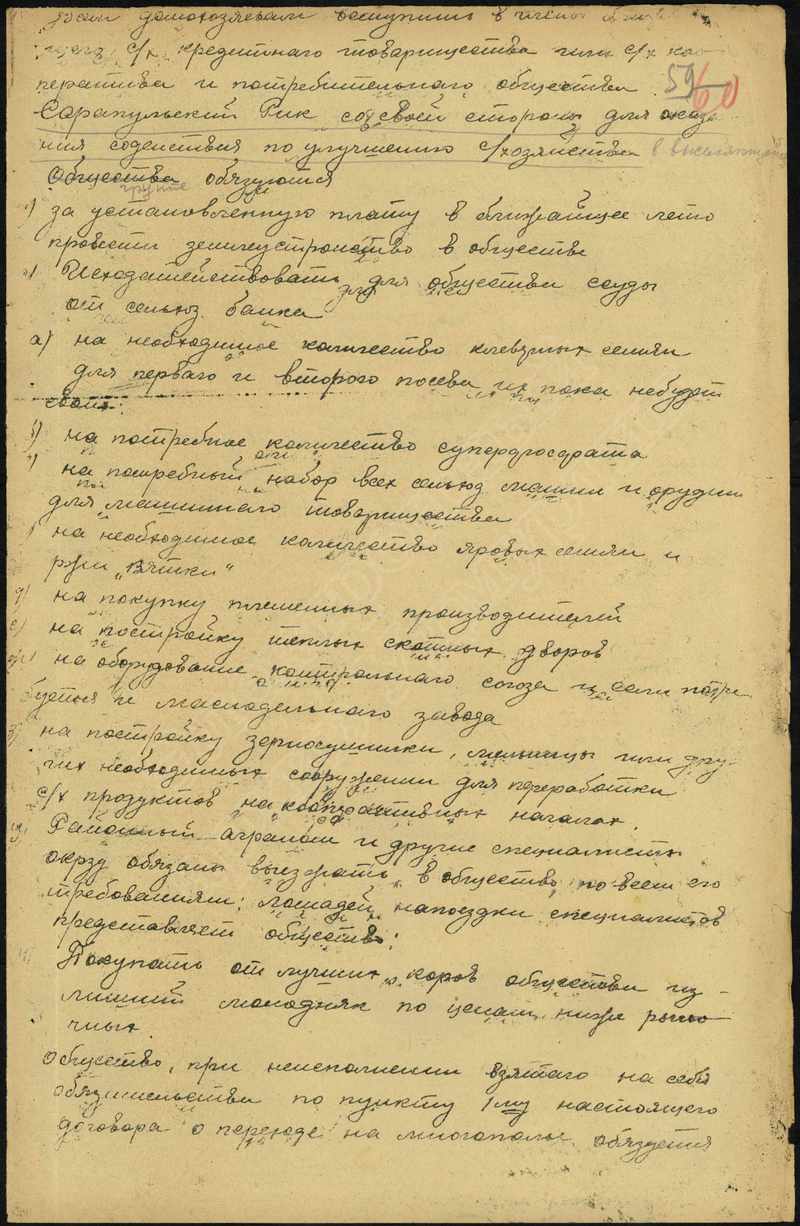 Всем домохозяевам вступить в члены
с/х кредитнаго товарищества или с/х коо-
ператива и потребительнаго общества.
59 60
Сарапульский Рик со своей стороны для оказа
ния содействия по улучшению с/хозяйства в
Общества группе обязуются
1) за установленную плату в ближайшее лето
провести землеустройство в обществе
2) Исходатействовать для общества ссуды
от сельхоз. банка
а) на необходимое количество клеверных семян
для перваго и второго посева их пока небудет
своих.
б) на потребное количество суперфосфата
на потребный набор всех сельхоз машин и орудии
для машиннаго товарищества
на необходимое количество яровых семян и
ржи „Вятки“
д) на покупку племенных производителей
е) на постройку теплых скотных дворов
ж) на оборудование контрольнаго союза и если потре
буется и маслодельнаго завода
з) на постройку зерносушилки, мельницы или дру-
гих необходимых сооружении для переработки
с/х продуктов на кооперативных началах.
Районный агроном и другие специалисты
окрзу обязаны выезжать в общество по всем его
требованиям; лошадей на поездки специалистов
представляет общество;
Покупать от лучших коров общества из-
лишний молодняк по ценам ниже рыноч
ных.
Общество, при неисполнении взятаго на себя
обязательства по пункту 1му настоящего
договора о переходе на многополье обязуется